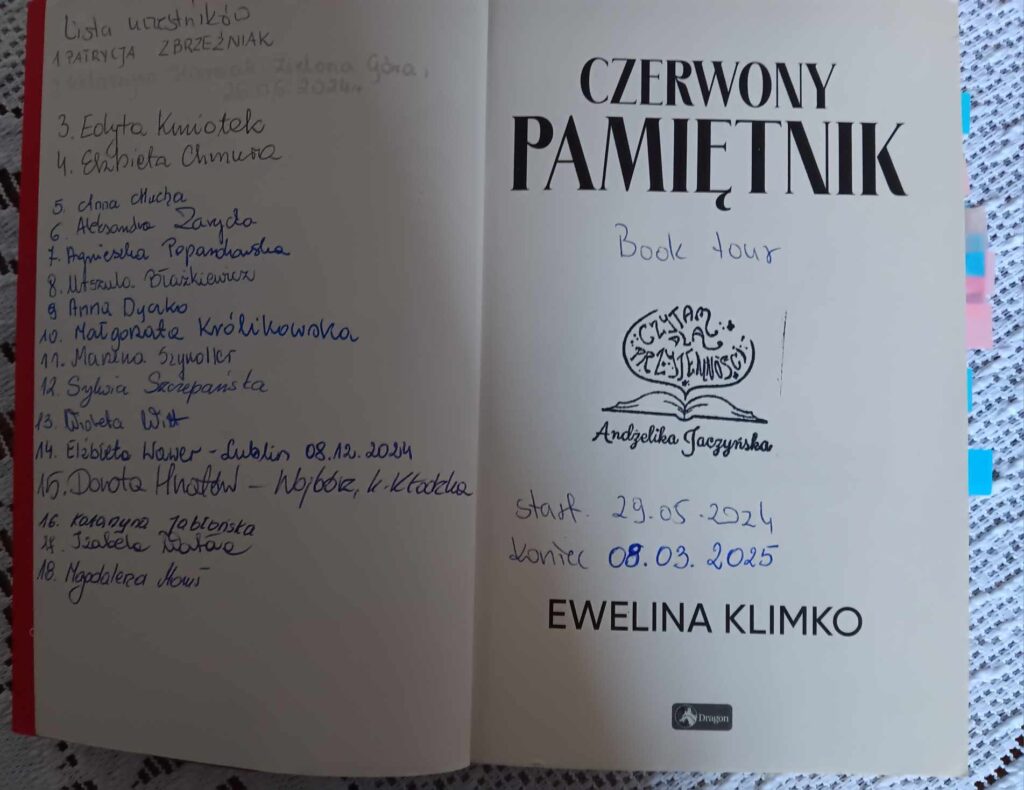 Lista uczestników
1 PATRYCJA ZBRZEŹNIAK
Zielona Góra,
2024r
3. Edyta Kmiotek
4. Elżbieta Chmura
5. Anna Mucha
6. Aleksandra Zaryda
7. Agnieszka
8. Urszula Błażkiewicz
9 Anna Dyczko
10. Małgorzata Królikowska
11. Marzena
12. Sylwia Szczepańska
13. Wioleta Witt
14. Elżbieta Wawer - Lublin 08.12.2024
15. Dorota - Wojbórz, k. Kłodzka
16. Katarzyna Jabłońska
Izabela
18. Magdalena
CZERWONY
PAMIĘTNIK
Book tour
CZYTAM
DLA
PRZYJEMNOŚCI
Andżelika Jaczyńska
start. 29.05.2024
koniec 08.03.2025
EWELINA KLIMKO
Dragon